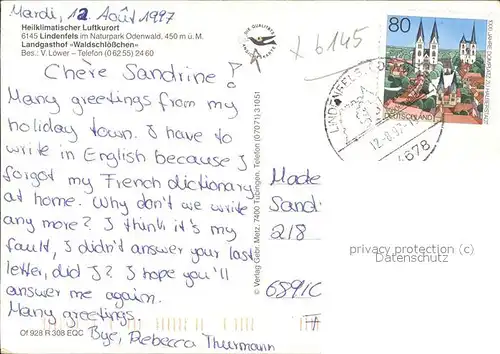 Mardi, 12. Août 1997
Heilklimatischer Luftkurort
6145 Lindenfels im Naturpark Odenwald, 450 m ü. M.
Landgasthof «Waldschlößchen»
Bes.: V. Löwer – Telefon (0 62 55) 24 60
Chère Sandrine!
Many greetings from my
holiday town. I have to
write in English because I
forgot my French dictionary
at home. Why don't we write
any more? I think it's my
fault, I didn't answer your last
letter, did I? I hope you'll
answer me again.
Many greetings.
Bye, Rebecca Thurmann
Of 928 R 308 EQC
DIE QUALITÄTS
© Verlag Gebr. Metz, 7400 Tübingen, Telefon (07071) 31051
x 6145
80
DEUTSCHLAND
1000 JAHRE DOM
LINDENFELS
12.-8.97
4678
Made
Sandr
218
68910
privacy protection (c)
Datenschutz